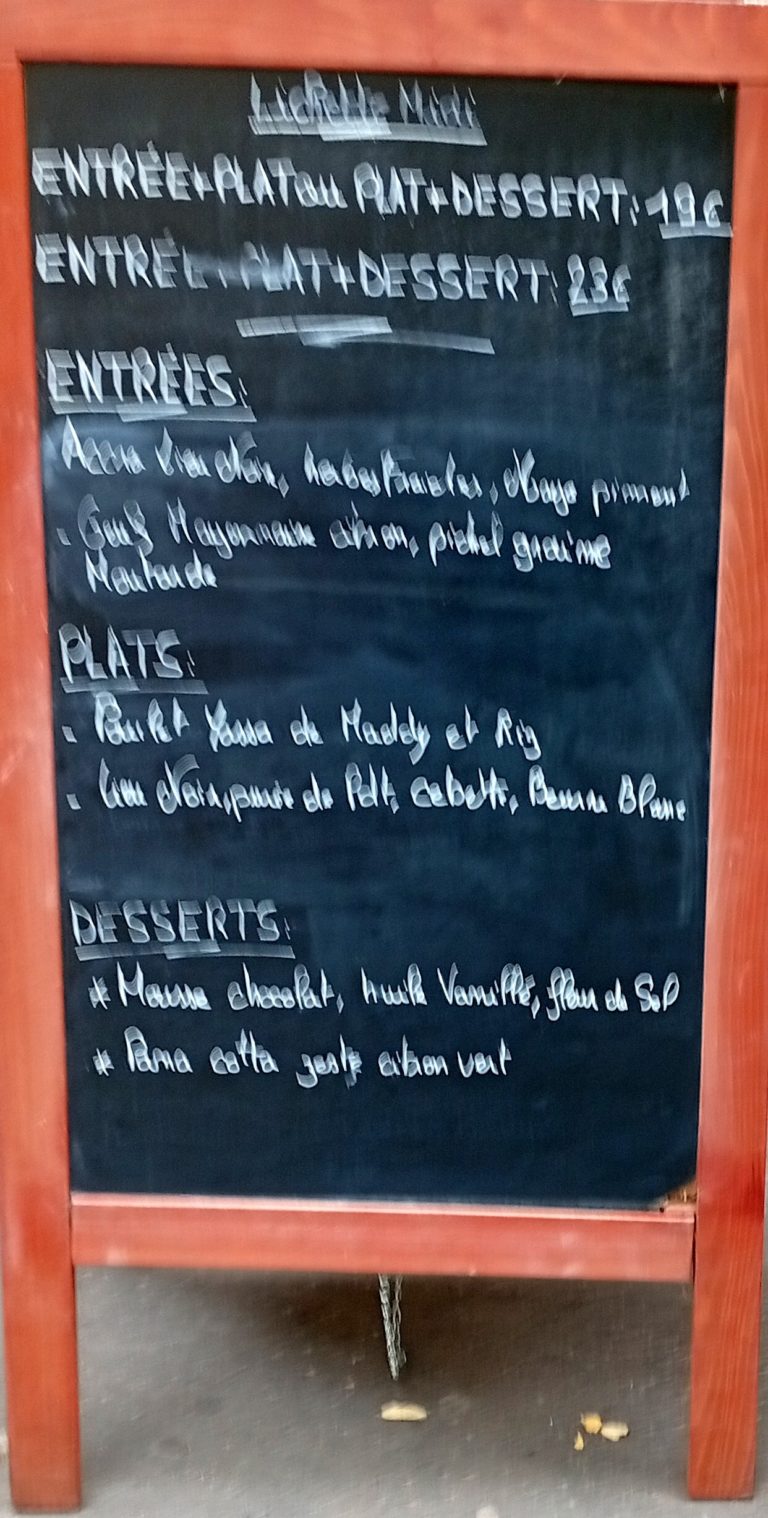 Midi
ENTRÉE+PLAT ou PLAT+DESSERT: 19€
ENTRÉE+PLAT+DESSERT: 23€
ENTRÉES:
Accra lieu noir, piment
. Oeuf Mayonnaise citron, pickel graine
Moutarde
PLATS:
. Poulet Yassa de Maddy et Riz
. lieu noir, purée de Pdt, cebette, Beurre Blanc
DESSERTS:
* Mousse chocolat, huile Vanille, fleur de Sel
* Pana cotta zeste citron vert